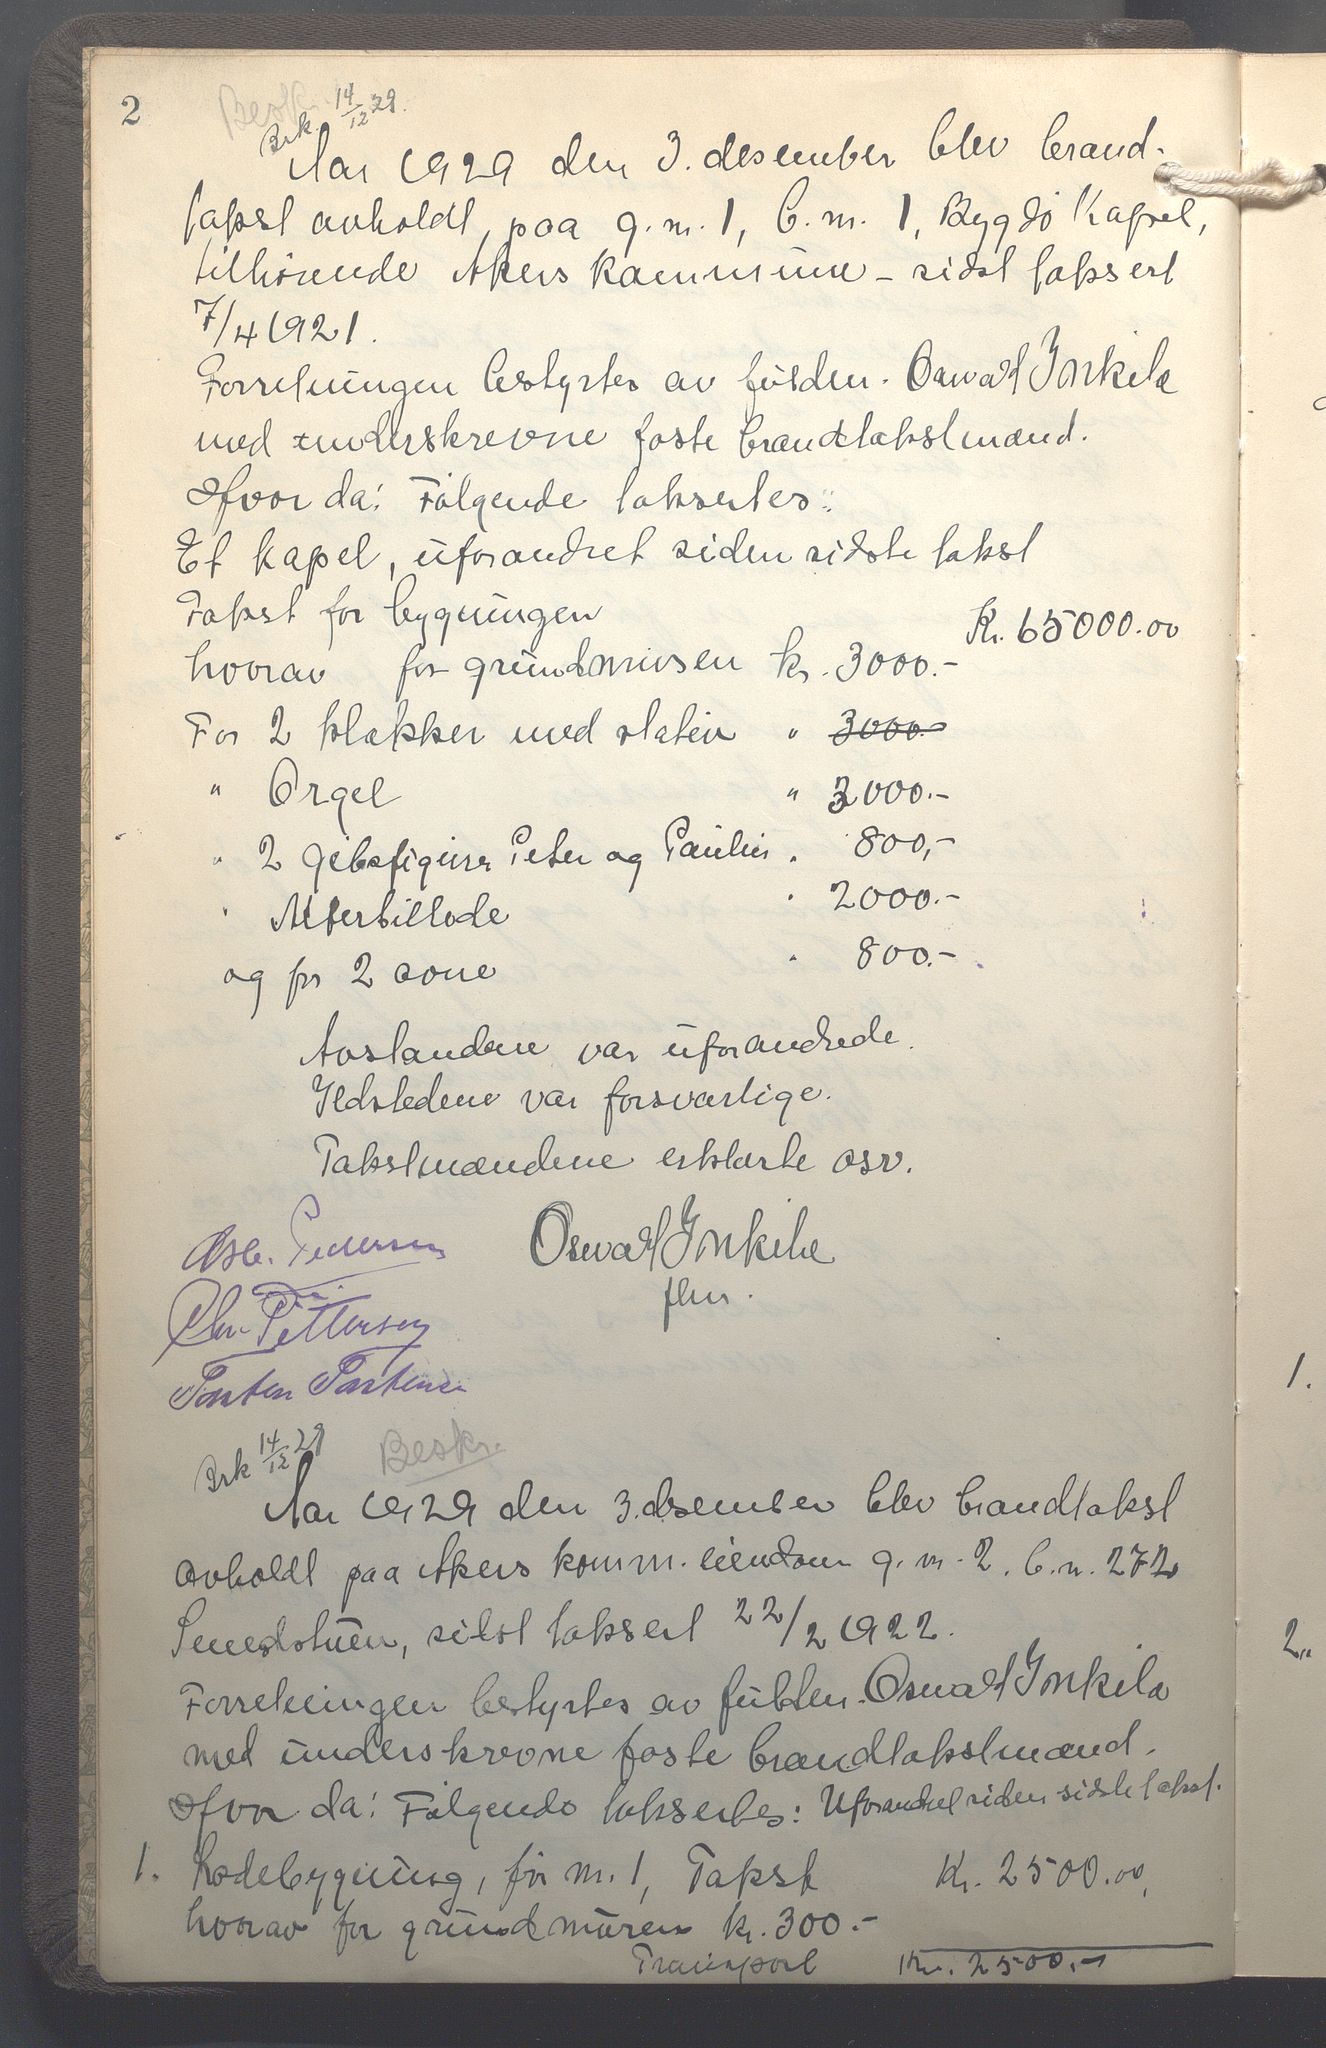 2
Beskr.
Brk. 14/12 29.
Aar 1929 den 3. desember blev brand-
takst avholdt, paa g.n. 1, b.n. 1, Bygdø Kapel,
tilhørende Akers kommune – sidst taksert
7/4 1921.
Forretningen bestyrtes av fuldm. Oswald
med underskrevne faste brandtakstmænd.
Hvor da: Følgende taksertes:
Et kapel, uforandret siden sidste takst
Takst for bygningen Kr. 65000.00
hvorav for grundmuren kr. 3000.-
For 2 klokker med " 3000.-
" Orgel " 3000.-
" 2 gibsfigurer Peter og Paulus " 800,-
" Alterbillede " 2000.-
og for 2 ovne " 800.-
Avstandene var uforandrede.
Ildstedene var forsvarlige.
Takstmændene erklærte osv.
Asb. Pedersen Oswald
Chr. Pettersen flm.
Torsten Torstensen
Brk 14/12 29 Beskr.
Aar 1929 den 3. desember blev brandtakst
avholdt paa Akers komm. eiendom g.n. 2, b.n. 272
sidst taksert 22/2 1922.
Forretningen bestyrtes av fuldm. Oswald
med underskrevne faste brandtakstmænd.
Hvor da: Følgende taksertes: Uforandret siden sidste takst.
1. Ladebygning, før nr. 1, Takst Kr. 2500.00,
hvorav for grundmuren kr. 300.-
Transport Kr. 2500.-
1.
2.